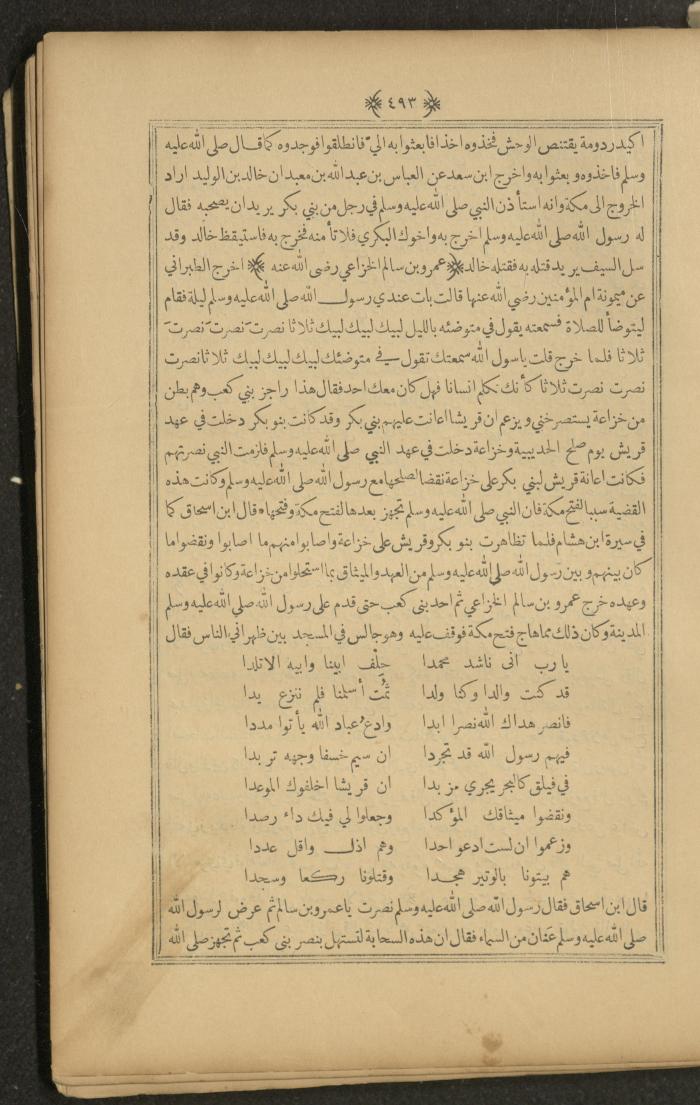 ٤٩٣
اكيدر دومة يقتنص الوحش فخذوه اخذا فابعثوا به اليّ فانطلقوا فوجدوه كما قال صلى الله عليه
وسلم فاخذوه وبعثوا به واخرج ابن سعد عن العباس بن عبد الله بن معبد ان خالد بن الوليد اراد
الخروج الى مكة وانه استأذن النبي صلى الله عليه وسلم في رجل من بني بكر يريد ان يصحبه فقال
له رسول الله صلى الله عليه وسلم اخرج به واخوك البكري فلا تأمنه فخرج به فاستيقظ خالد وقد
سل السيف يريد قتله به فقتله خالد ﴿عمرو بن سالم الخزاعي رضى الله عنه﴾ اخرج الطبراني
عن ميمونة ام المؤمنين رضي الله عنها قالت بات عندي رسول الله صلى الله عليه وسلم ليلة فقام
ليتوضأ للصلاة فسمعته يقول في متوضئه بالليل لبيك لبيك لبيك ثلاثا نصرتَ نصرتَ نصرتَ
ثلاثا فلما خرج قلت يا رسول الله سمعتك تقول في متوضئك لبيك لبيك لبيك ثلاثا نصرت
نصرت نصرت ثلاثا كأنك تكلم انسانا فهل كان معك احد فقال هذا راجز بني كعب وهم بطن
من خزاعة يستصرخني ويزعم ان قريشا اعانت عليهم بني بكر وقد كانت بنو بكر دخلت في عهد
قريش يوم صلح الحديبية وخزاعة دخلت في عهد النبي صلى الله عليه وسلم فلزمت النبي نصرتهم
فكانت اعانة قريش لبني بكر على خزاعة نقضا لصلحها مع رسول الله صلى الله عليه وسلم وكانت هذه
القضية سببا لفتح مكة فان النبي صلى الله عليه وسلم تجهز بعدها لفتح مكة وفتحها * قال ابن اسحاق كما
في سيرة ابن هشام فلما تظاهرت بنو بكر وقريش على خزاعة واصابوا منهم ما اصابوا ونقضوا ما
كان بينهم وبين رسول الله صلى الله عليه وسلم من العهد والميثاق بما استحلوا من خزاعة وكانوا في عقده
وعهده خرج عمرو بن سالم الخزاعي ثم احد بنى كعب حتى قدم على رسول الله صلى الله عليه وسلم
المدينة وكان ذلك مما هاج فتح مكة فوقف عليه وهو جالس في المسجد بين ظهراني الناس فقال
يا رب انى ناشد محمدا حِلْف ابينا وابيه الاتلدا
قد كنت والدا وكنا ولدا ثُمَّت أسلمنا فلم ننزع يدا
فانصر هداك الله نصرا ابدا وادعُ عباد الله يأتوا مددا
فيهم رسول الله قد تجردا ان سيم خسفا وجهه تربدا
في فيلق كالبحر يجري مزبدا ان قريشا اخلفوك الموعدا
ونقضوا ميثاقك المؤكدا وجعلوا لي فيك داء رصدا
وزعموا ان لست ادعو احدا وهم اذل واقل عددا
هم بيتونا بالوتير هجدا وقتلونا ركعا وسجدا
قال ابن اسحاق فقال رسول الله صلى الله عليه وسلم نصرت يا عمرو بن سالم ثم عرض لرسول الله
صلى الله عليه وسلم عَنان من السماء فقال ان هذه السحابة لتستهل بنصر بنى كعب ثم تجهز صلى الله